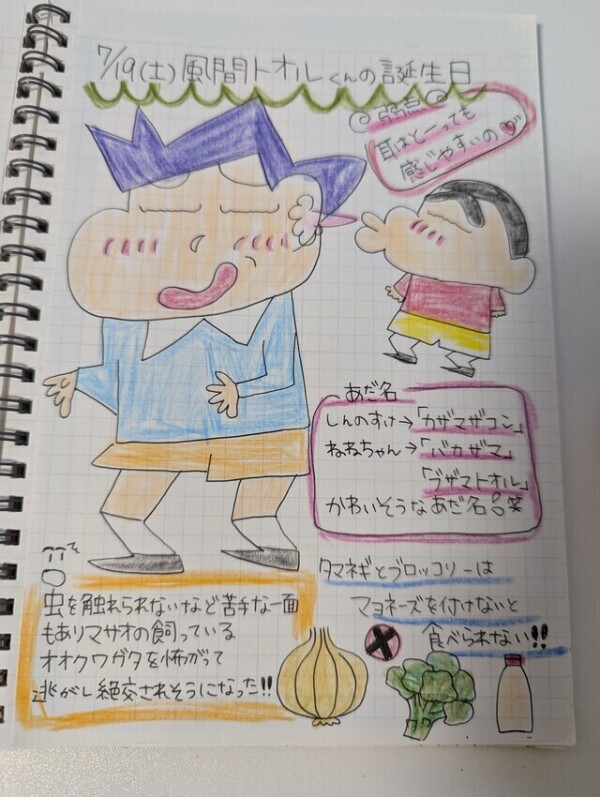 7/19(土)風間トオルくんの誕生日
弱点
耳はとーっても
感じやすいの
あだ名
しんのすけ→「カザマザコン」
ねねちゃん→「バカザマ」
「ブザマトオル」
かわいそうなあだ名笑
虫を触れられないなど苦手な一面
もありマサオの飼っている
オオクワガタを怖がって
逃がし絶交されそうになった!!
タマネギとブロッコリーは
マヨネーズを付けないと
食べられない!!